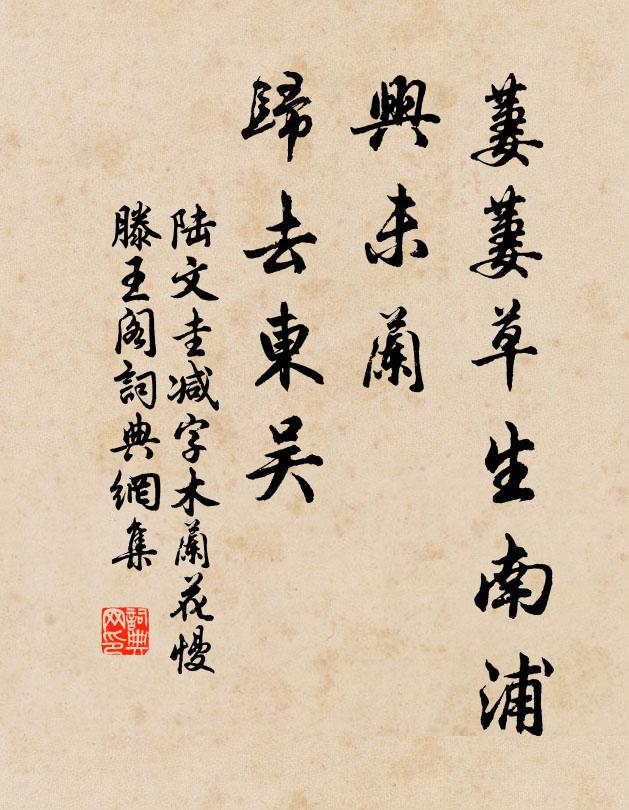 萋萋草生南浦
興未闌
歸去東吴
陆文圭减字木蘭花慢
滕王阁詞典網集
詞典网印